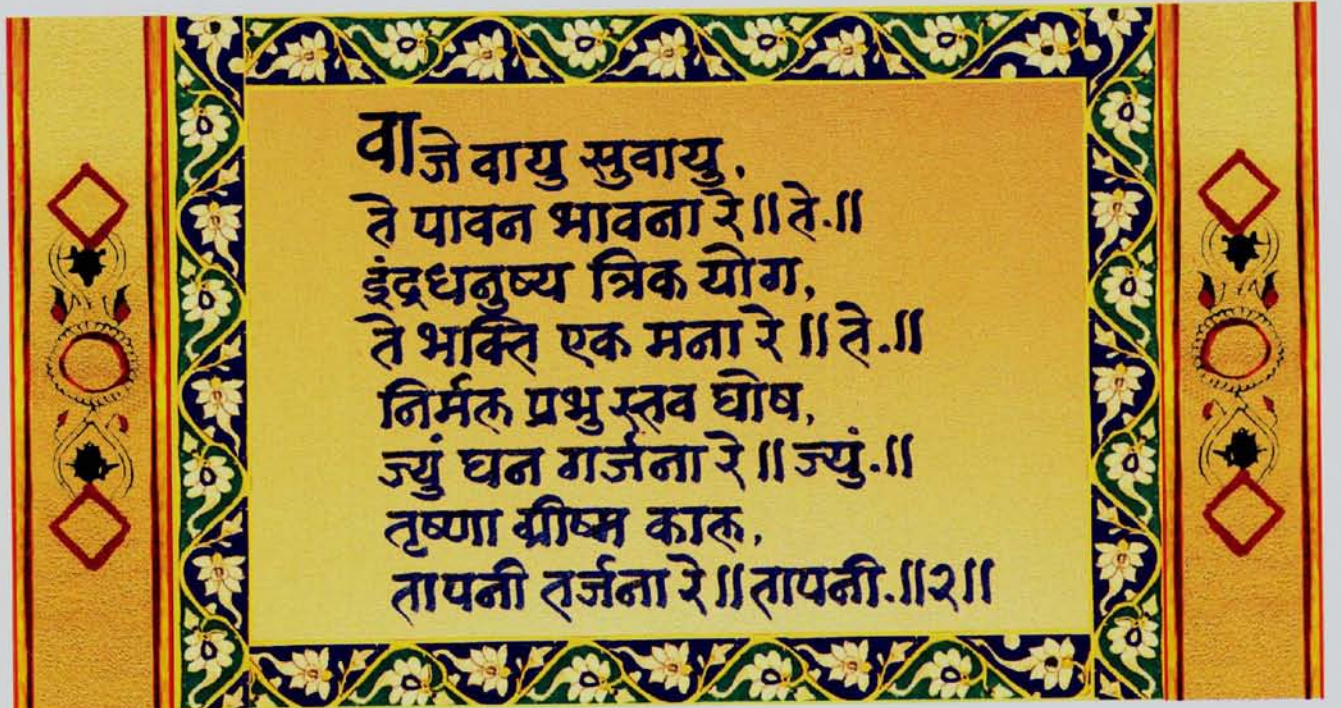 वाजे वायु सुवायु,
ते पावन भावना रे ॥ ते.॥
इंद्रधनुष्य त्रिक योग,
ते भक्ति एक मना रे ॥ ते.॥
निर्मल प्रभु स्तव घोष,
ज्युं घन गर्जना रे ॥ ज्युं.॥
तृष्णा ग्रीष्म काल,
तापनी तर्जना रे ॥ तापनी.॥२॥